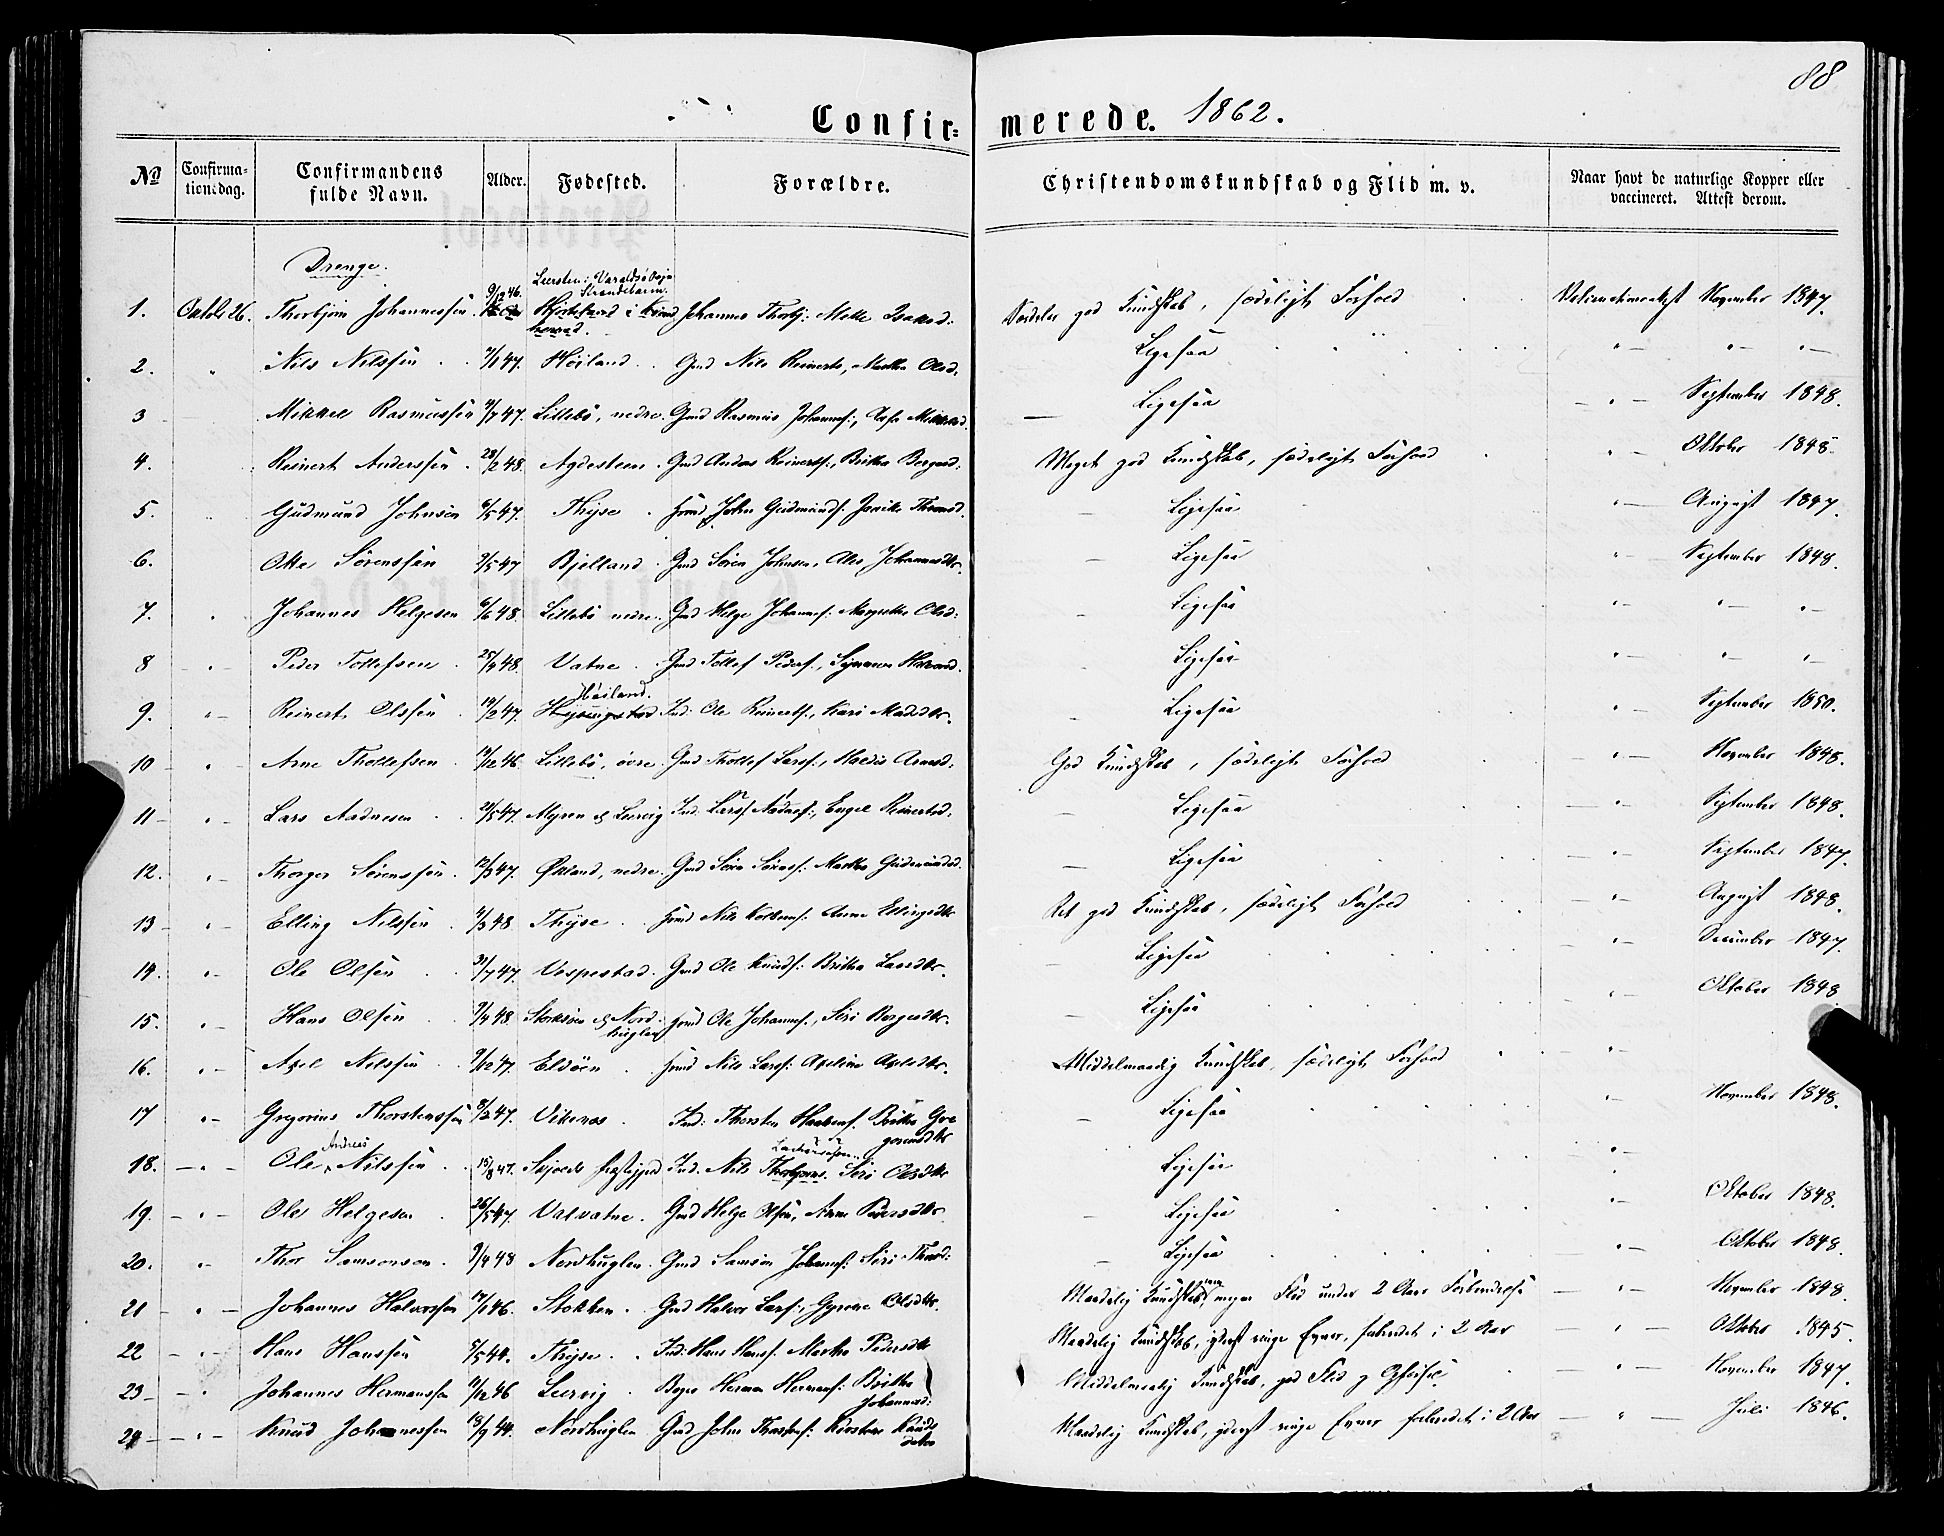 88
Confir= merede. 1862.
No Confirma-tionsdag. Confirmandens fulde Navn. Alder. Fødested. Forældre. Christendomskundskab og Flid m. v. Naar havt de naturlige Kopper eller vaccineret. Attest derom.
Drenge.
1. Oktob 26. Thorbjørn Johannessen 9/12 46. Strandebarm. Johannes Thorbj: Mette Isaksd: god Kundskab, sædeligt Forhold November 1847.
2. " Nils Nilssøn 7/1 47. Høiland Gmd Nils Reinerts, Martha Olsd. Ligesaa "— "— "—
3 Mikkel Rasmussen 7/7 47. Lillebø, nedre. Gmd Rasmus Johannes: — Ligesaa — "— September 1848.
4. Reinert Anderssøn 28/2 48. Agdesteen Gmd Anders Reinerts., Britha Bergesd. Meget god Kundskab, sædeligt Forhold "— Oktober 1848.
5. Gudmund Johnsen 6/5 47. Thyse John Gudmunds: — Ligesaa "— August 1847.
6. Otto Sørenssøn 9/5 47 Bjelland Gmd Søren Johnsen, Johannesdtr. — Ligesaa "— September 1848.
7. " Johannes Helgesen 6/6 48. Lillebø nedre. Gmd Helge Johannes: Margrethe Olsd: — Ligesaa "— "— "—
8 "— Peder Tollefsen 25/9 48. Vatne Gmd Tollef Peders., — Ligesaa "— "— "—
9. "— Reinert Olssøn 14/2 47. Høiland. Ind: Ole Reinerts., Kari Madsdtr. — Ligesaa "— September 1850.
10 " Arne Thollefsen 19/12 46. Lillebø, øvre Gmd Thollef Lars:, Arnesd. God Kundskab, sædeligt Forhold "— November 1848.
11— "— Lars Aadnesen 21/5 47. Myren & Leervig Ind: Lars Aadnes:, Engel Reinertsd. — Ligesaa — "— September 1848.
12. "— Thorger Sørenssøn 12/3 47. Økland, nedre. Gmd Søren Sørens: Martha Gudmundsd. — Ligesaa — "— September 1847.
13 "— Elling Nilssøn 4/3 48. Thyse Nils Anna Ellingsdtr Ret god Kundskab, sædeligt Forhold — "— August 1848.
14. "— Ole Olsen 31/7 47. Vespestad. Gmd Ole Knuds: Britha Larsdtr. — Ligesaa — "— December 1847.
15. "— Hans Olsen 9/4 48 Storksøn & Nordhuglen Ole Johannes., Siri Borgesdtr. Ligesaa — "— Oktober 1848
16. "— Axel Nilssøn 9/12 47. Eldøen Nils Lars: Axeline Axelsdtr. Middelmaadig Kundskab, sædeligt Forhold — "—
17 "— Gregorius Thorstenssøn 8/2 47. Vikenes Ind: Thorsten Britha Gregoriusdtr — Ligesaa "— November 1848.
18. — "— Ole Andreas Nilssøn 15/8 47. Ind. Nils Siri Olsdtr Ligesaa "—
19. — "— Ole Helgesen 26/5 47. Valvatne Gmd Helge Olsen, Anne Pedersdtr — Ligesaa "— Oktober 1848.
20. "— Thor Samsonson 9/4 48 Nordhuglen. Gmd Samson Johannes: Siri Thorsd: — Ligesaa "— Oktober 1848.
21 — "— Johannes Halvorsson 17/1 46. Stokken. Gmd Halvor Lars:, Olsdtr. Maadelig Kundskab, megen Flid under 2 Aars Forberedelse — "— November 1848.
22 — "— Hans Hanssøn 5/5 44. Thyse Ind: Hans Hans: Martha Pedersdtr Maadelig Kundskab, yderst ringe Evner, forberedet i 2 Aar — "— Oktober 1845.
23 — "— Johannes Hermanssøn 11/12 46 Leervig Herman Hermans: Britha Johannesd: Middelmaadig Kundskab, god Flid og Opførsel — "— November 1847.
24 — "— Knud Johannessen 18/9 44. Nordhuglen Gmd Kirsten Knudsdatter Maadelig Kundskab, yderst ringe Evner forberedet i 2 Aar — "— Juli 1846.